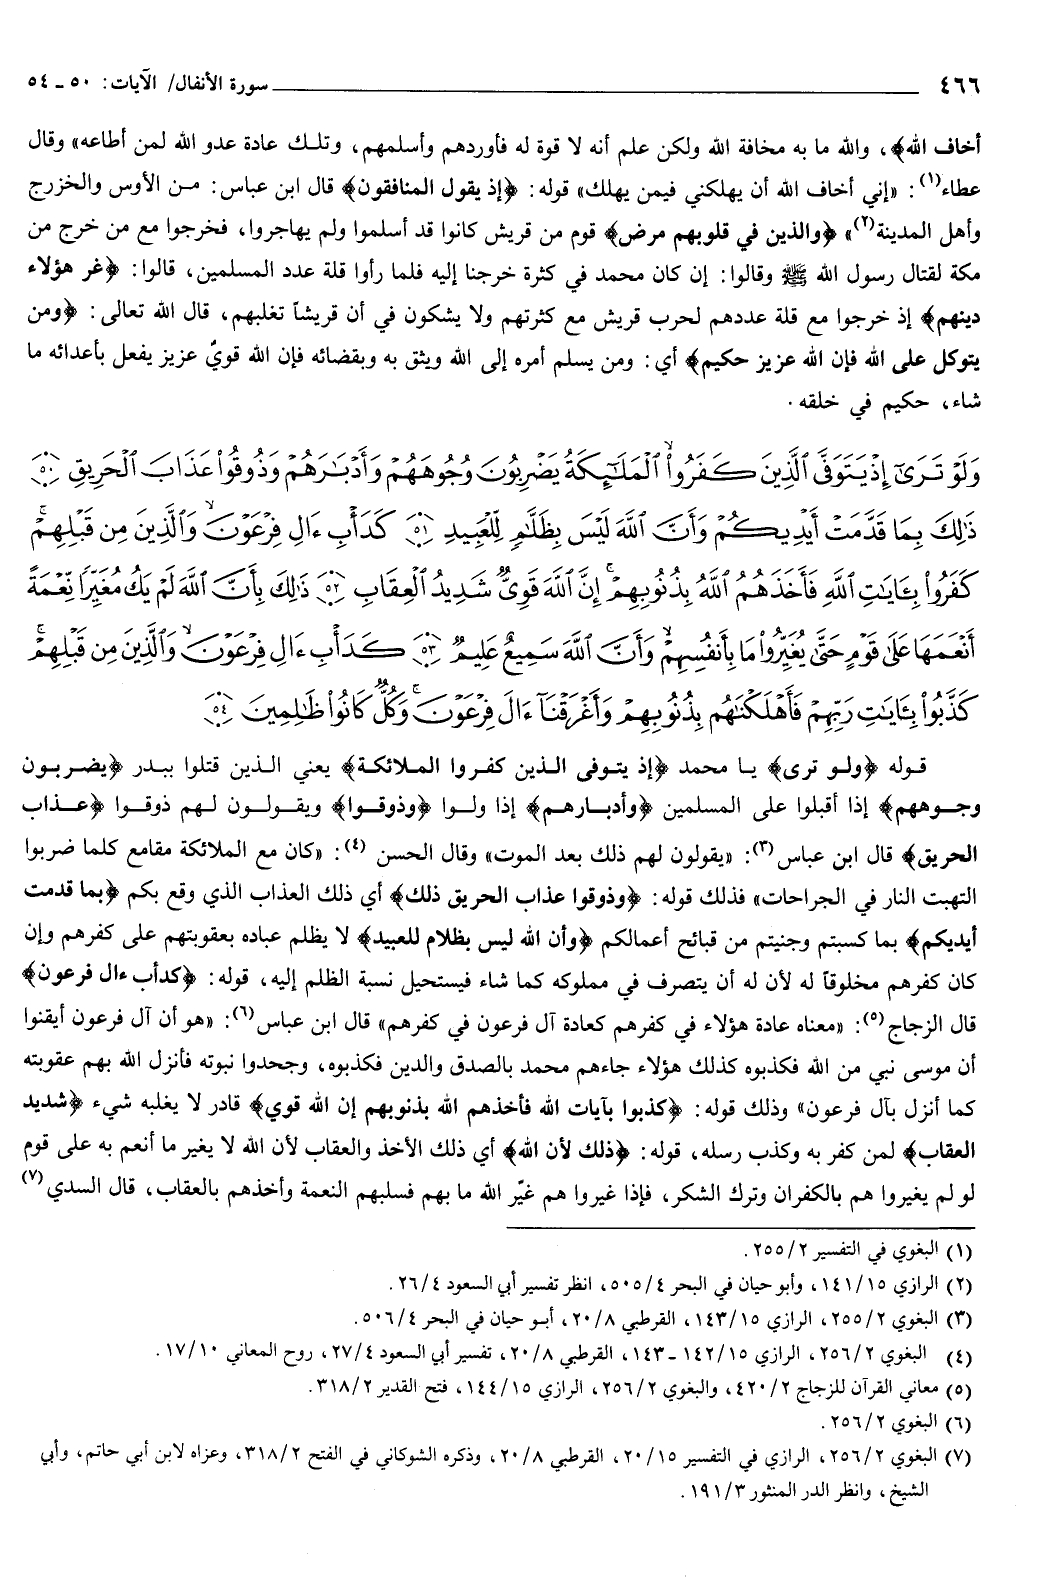 ٤٦٦ سورة الأنفال/ الآيات: ٥٠ ـ ٥٤
أخاف الله﴾، والله ما به مخافة الله ولكن علم أنه لا قوة له فأوردهم وأسلمهم، وتلك عادة عدو الله لمن أطاعه» وقال
عطاء(١): «إني أخاف الله أن يهلكني فيمن يهلك» قوله: ﴿إذ يقول المنافقون﴾ قال ابن عباس: من الأوس والخزرج
وأهل المدينة(٢)» ﴿والذين في قلوبهم مرض﴾ قوم من قريش كانوا قد أسلموا ولم يهاجروا، فخرجوا مع من خرج من
مكة لقتال رسول الله ﷺ وقالوا: إن كان محمد في كثرة خرجنا إليه فلما رأوا قلة عدد المسلمين، قالوا: ﴿غر هؤلاء
دينهم﴾ إذ خرجوا مع قلة عددهم لحرب قريش مع كثرتهم ولا يشكون في أن قريشاً تغلبهم، قال الله تعالى: ﴿ومن
يتوكل على الله فإن الله عزيز حكيم﴾ أي: ومن يسلم أمره إلى الله ويثق به وبقضائه فإن الله قويّ عزيز يفعل بأعدائه ما
شاء، حكيم في خلقه.
وَلَوْ تَرَىٰٓ إِذْ يَتَوَفَّى ٱلَّذِينَ كَفَرُوا۟ ۙ ٱلْمَلَٰٓئِكَةُ يَضْرِبُونَ وُجُوهَهُمْ وَأَدْبَٰرَهُمْ وَذُوقُوا۟ عَذَابَ ٱلْحَرِيقِ ﴿٥٠﴾
ذَٰلِكَ بِمَا قَدَّمَتْ أَيْدِيكُمْ وَأَنَّ ٱللَّهَ لَيْسَ بِظَلَّٰمٍ لِّلْعَبِيدِ ﴿٥١﴾ كَدَأْبِ ءَالِ فِرْعَوْنَ ۙ وَٱلَّذِينَ مِن قَبْلِهِمْ ۚ
كَفَرُوا۟ بِـَٔايَٰتِ ٱللَّهِ فَأَخَذَهُمُ ٱللَّهُ بِذُنُوبِهِمْ ۗ إِنَّ ٱللَّهَ قَوِىٌّ شَدِيدُ ٱلْعِقَابِ ﴿٥٢﴾ ذَٰلِكَ بِأَنَّ ٱللَّهَ لَمْ يَكُ مُغَيِّرًا نِّعْمَةً
أَنْعَمَهَا عَلَىٰ قَوْمٍ حَتَّىٰ يُغَيِّرُوا۟ مَا بِأَنفُسِهِمْ ۙ وَأَنَّ ٱللَّهَ سَمِيعٌ عَلِيمٌ ﴿٥٣﴾ كَدَأْبِ ءَالِ فِرْعَوْنَ ۙ وَٱلَّذِينَ مِن قَبْلِهِمْ ۚ
كَذَّبُوا۟ بِـَٔايَٰتِ رَبِّهِمْ فَأَهْلَكْنَٰهُم بِذُنُوبِهِمْ وَأَغْرَقْنَآ ءَالَ فِرْعَوْنَ ۚ وَكُلٌّ كَانُوا۟ ظَٰلِمِينَ ﴿٥٤﴾
قوله ﴿ولو ترى﴾ يا محمد ﴿إذ يتوفى الذين كفروا الملائكة﴾ يعني الذين قتلوا ببدر ﴿يضربون
وجوههم﴾ إذا أقبلوا على المسلمين ﴿وأدبارهم﴾ إذا ولوا ﴿وذوقوا﴾ ويقولون لهم ذوقوا ﴿عذاب
الحريق﴾ قال ابن عباس(٣): «يقولون لهم ذلك بعد الموت» وقال الحسن (٤): «كان مع الملائكة مقامع كلما ضربوا
التهبت النار في الجراحات» فذلك قوله: ﴿وذوقوا عذاب الحريق ذلك﴾ أي ذلك العذاب الذي وقع بكم ﴿بما قدمت
أيديكم﴾ بما كسبتم وجنيتم من قبائح أعمالكم ﴿وأن الله ليس بظلام للعبيد﴾ لا يظلم عباده بعقوبتهم على كفرهم وإن
كان كفرهم مخلوقاً له لأن له أن يتصرف في مملوكه كما شاء فيستحيل نسبة الظلم إليه، قوله: ﴿كدأب ءال فرعون﴾
قال الزجاج(٥): «معناه عادة هؤلاء في كفرهم كعادة آل فرعون في كفرهم» قال ابن عباس(٦): «هو أن آل فرعون أيقنوا
أن موسى نبي من الله فكذبوه كذلك هؤلاء جاءهم محمد بالصدق والدين فكذبوه، وجحدوا نبوته فأنزل الله بهم عقوبته
كما أنزل بآل فرعون» وذلك قوله: ﴿كذبوا بآيات الله فأخذهم الله بذنوبهم إن الله قوي﴾ قادر لا يغلبه شيء ﴿شديد
العقاب﴾ لمن كفر به وكذب رسله، قوله: ﴿ذلك لأن الله﴾ أي ذلك الأخذ والعقاب لأن الله لا يغير ما أنعم به على قوم
لو لم يغيروا هم بالكفران وترك الشكر، فإذا غيروا هم غيّر الله ما بهم فسلبهم النعمة وأخذهم بالعقاب، قال السدي(٧)
(١) البغوي في التفسير ٢٥٥/٢.
(٢) الرازي ١٤١/١٥، وأبو حيان في البحر ٥٠٥/٤، انظر تفسير أبي السعود ٢٦/٤.
(٣) البغوي ٢٥٥/٢، الرازي ١٤٣/١٥، القرطبي ٢٠/٨، أبو حيان في البحر ٥٠٦/٤.
(٤) البغوي ٢٥٦/٢، الرازي ١٤٢/١٥ ـ ١٤٣، القرطبي ٢٠/٨، تفسير أبي السعود ٢٧/٤، روح المعاني ١٧/١٠.
(٥) معاني القرآن للزجاج ٤٢٠/٢، والبغوي ٢٥٦/٢، الرازي ١٤٤/١٥، فتح القدير ٣١٨/٢.
(٦) البغوي ٢٥٦/٢.
(٧) البغوي ٢٥٦/٢، الرازي في التفسير ٢٠/١٥، القرطبي ٢٠/٨، وذكره الشوكاني في الفتح ٣١٨/٢، وعزاه لابن أبي حاتم، وأبي
الشيخ، وانظر الدر المنثور ١٩١/٣.